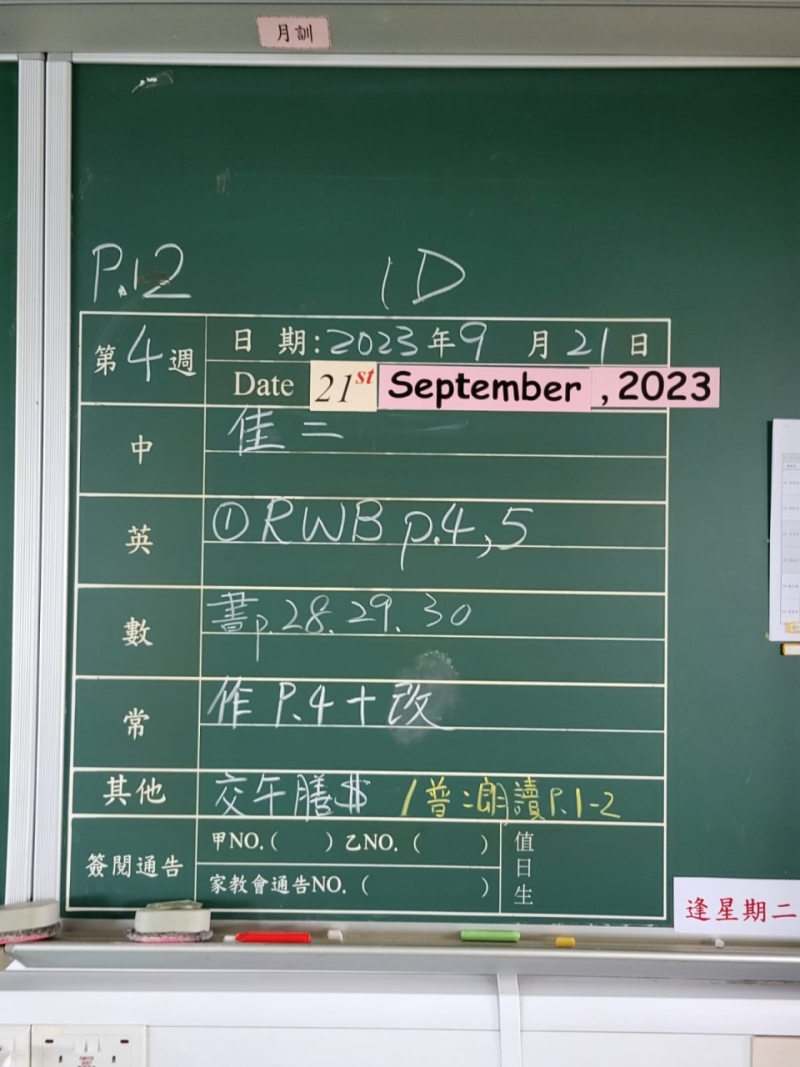 月訓
P.12 1D
第4週 日期:2023年9月21日
Date 21st September , 2023
中 佳二
英 ①RWB p.4,5
數 書p.28.29.30
常 作 P.4+改
其他 交午膳$ /普:朗讀P.1-2
簽閱通告 甲NO.( ) 乙NO. ( ) 值日生
家教會通告NO. ( )
逢星期二